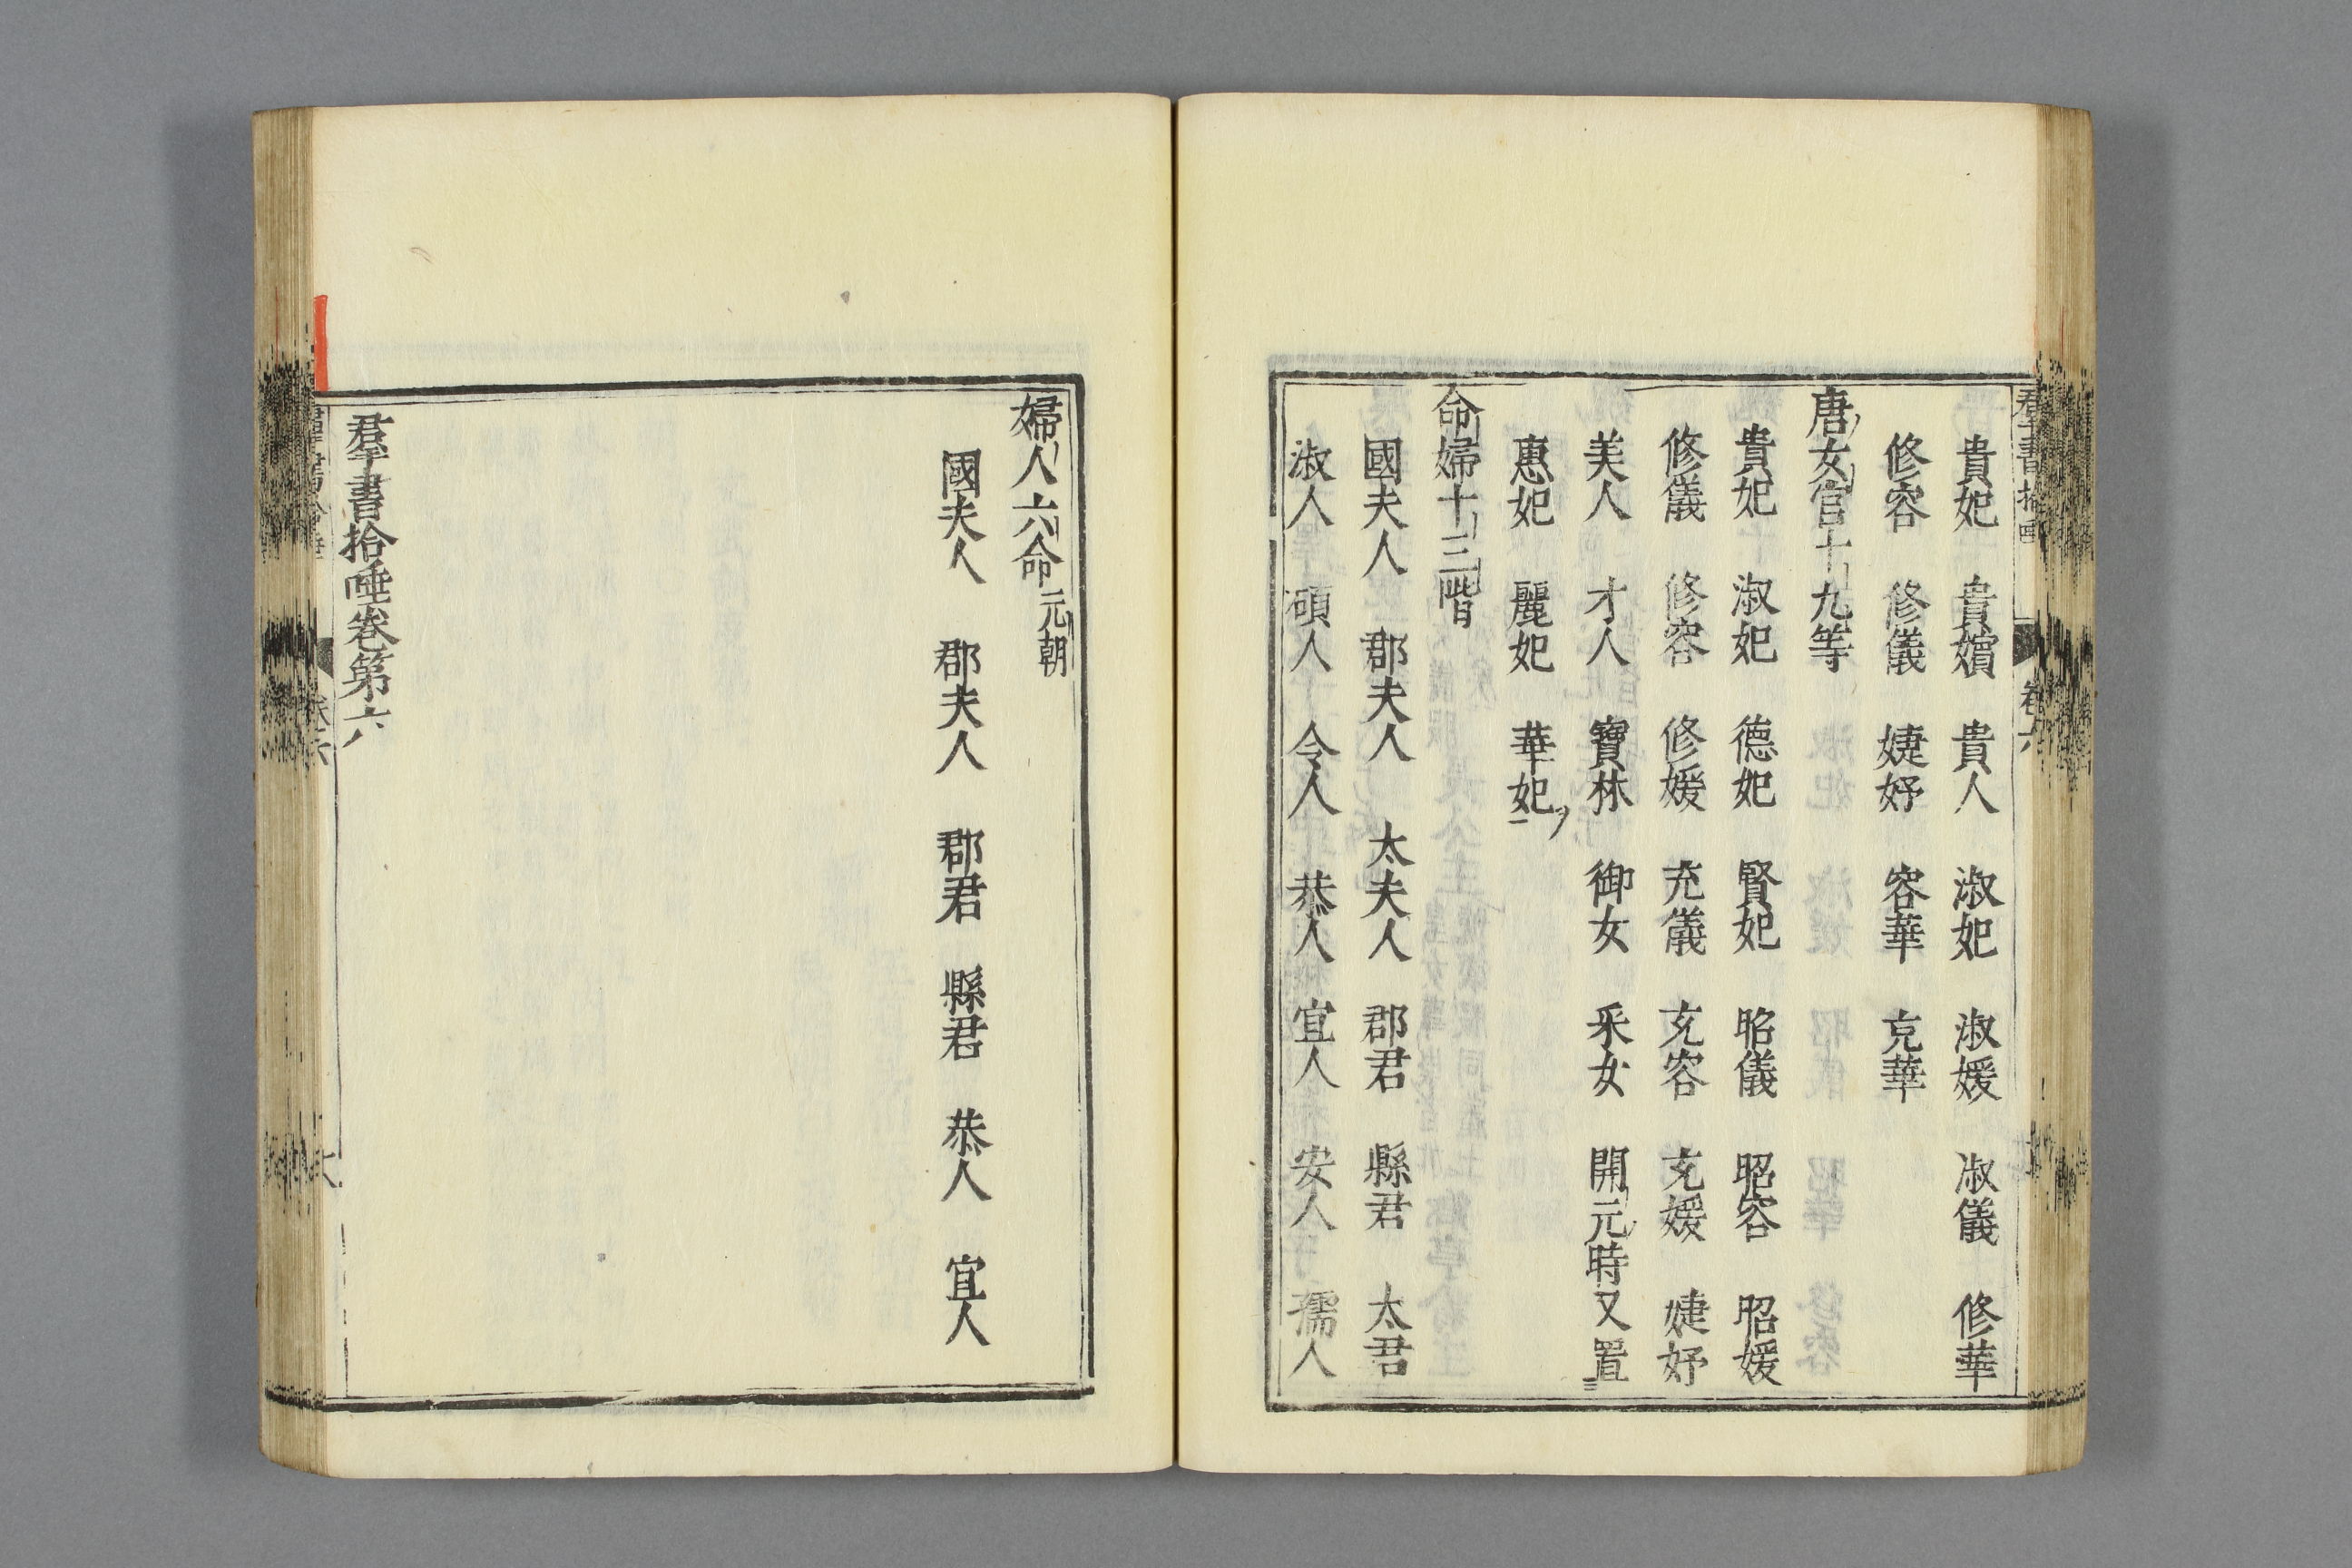 貴妃 貴嬪 貴人 淑妃 淑媛 淑儀 修華
修容 修儀 婕妤 容華 充華
唐女官十九等
貴妃 淑妃 德妃 賢妃 昭儀 昭容 昭媛
修儀 修容 修媛 充儀 充容 充媛 婕妤
美人 才人 寶林 御女 采女 開元時又置
惠妃 麗妃 華妃
命婦十三階
國夫人 郡夫人 太夫人 郡君 縣君 太君
淑人 碩人 令人 恭人 宜人 安人 孺人
婦人六命 元朝
國夫人 郡夫人 郡君 縣君 恭人 宜人
羣書拾唾卷第六